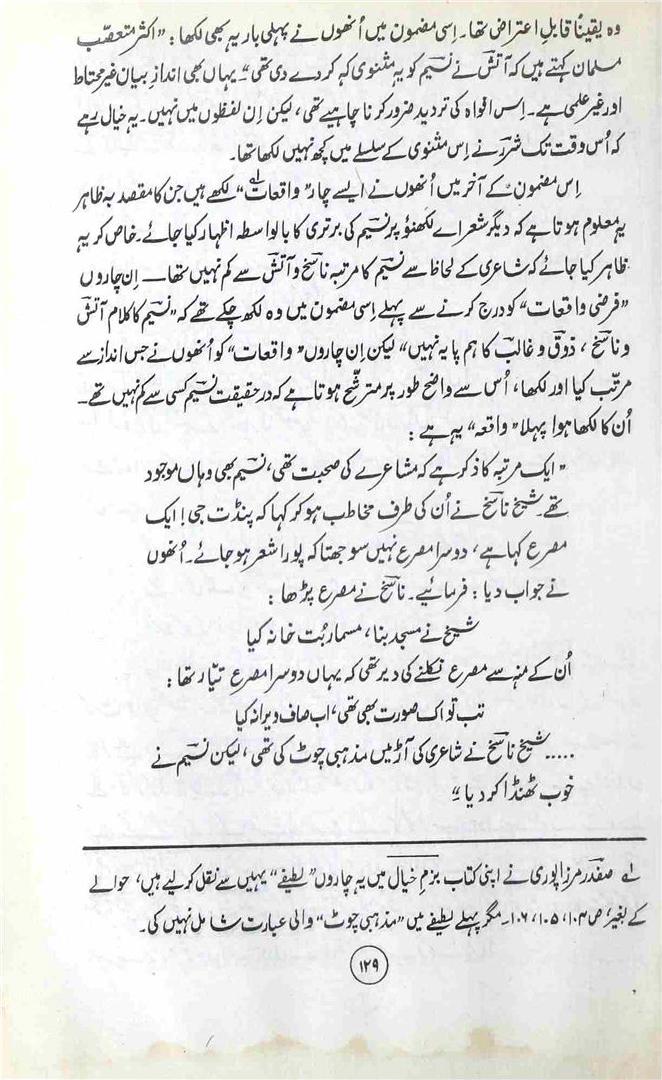 وہ یقیناً قابلِ اعتراض تھا۔ اِسی مضمون میں اُنھوں نے پہلی بار یہ بھی لکھا: "اکثر متعصّب
مسلمان کہتے ہیں کہ آتشؔ نے نسیمؔ کو یہ مثنوی کہہ کر دے دی تھی"۔ یہاں بھی اندازِ بیان غیر محتاط
اور غیر علمی ہے۔ اِس افواہ کی تردید ضرور کرنا چاہیے تھی، لیکن اِن لفظوں میں نہیں۔ یہ خیال رہے
کہ اُس وقت تک شررؔ نے اِس مثنوی کے سلسلے میں کچھ نہیں لکھا تھا۔
اِس مضمون کے آخر میں اُنھوں نے ایسے چار "واقعات"لہ لکھے ہیں جن کا مقصد بہ ظاہر
یہ معلوم ہوتا ہے کہ دیگر شعراے لکھنؤ پر نسیمؔ کی برتری کا بالواسطہ اظہار کیا جائے۔ خاص کر یہ
ظاہر کیا جائے کہ شاعری کے لحاظ سے نسیمؔ کا مرتبہ ناسخؔ و آتشؔ سے کم نہیں تھا — اِن چاروں
"فرضی واقعات" کو درج کرنے سے پہلے اِسی مضمون میں وہ لکھ چکے تھے کہ "نسیمؔ کا کلام آتشؔ
و ناسخؔ، ذوقؔ و غالبؔ کا ہم پایہ نہیں" لیکن اِن چاروں "واقعات" کو اُنھوں نے جس انداز سے
مرتّب کیا اور لکھا، اُس سے واضح طور پر مترشّح ہوتا ہے کہ در حقیقت نسیمؔ کسی سے کم نہیں تھے۔
اُن کا لکھا ہوا پہلا "واقعہ" یہ ہے:
"ایک مرتبہ کا ذکر ہے کہ مشاعرے کی صحبت تھی، نسیمؔ بھی وہاں موجود
تھے۔ شیخ ناسخؔ نے اُن کی طرف مخاطب ہو کر کہا کہ پنڈت جی! ایک
مصرع کہا ہے، دوسرا مصرع نہیں سوجھتا کہ پورا شعر ہو جائے۔ اُنھوں
نے جواب دیا: فرمائیے۔ ناسخؔ نے مصرع پڑھا:
شیخ نے مسجد بنا، مسمار بُت خانہ کیا
اُن کے منہ سے مصرع نکلنے کی دیر تھی کہ یہاں دوسرا مصرع تیّار تھا:
تب تو اک صورت بھی تھی، اب صاف ویرانہ کیا
..... شیخ ناسخؔ نے شاعری کی آڑ میں مذہبی چوٹ کی تھی، لیکن نسیمؔ نے
خوب ٹھنڈا کر دیا۔"
لہ صفدرؔ مرزا پوری نے اپنی کتاب بزمِ خیال میں یہ چاروں "لطیفے" یہیں سے نقل کر لیے ہیں، حوالے
کے بغیر، ص ۱۰۴، ۱۰۵، ۱۰۶۔ مگر پہلے لطیفے میں "مذہبی چوٹ" والی عبارت شامل نہیں کی۔
۱۲۹